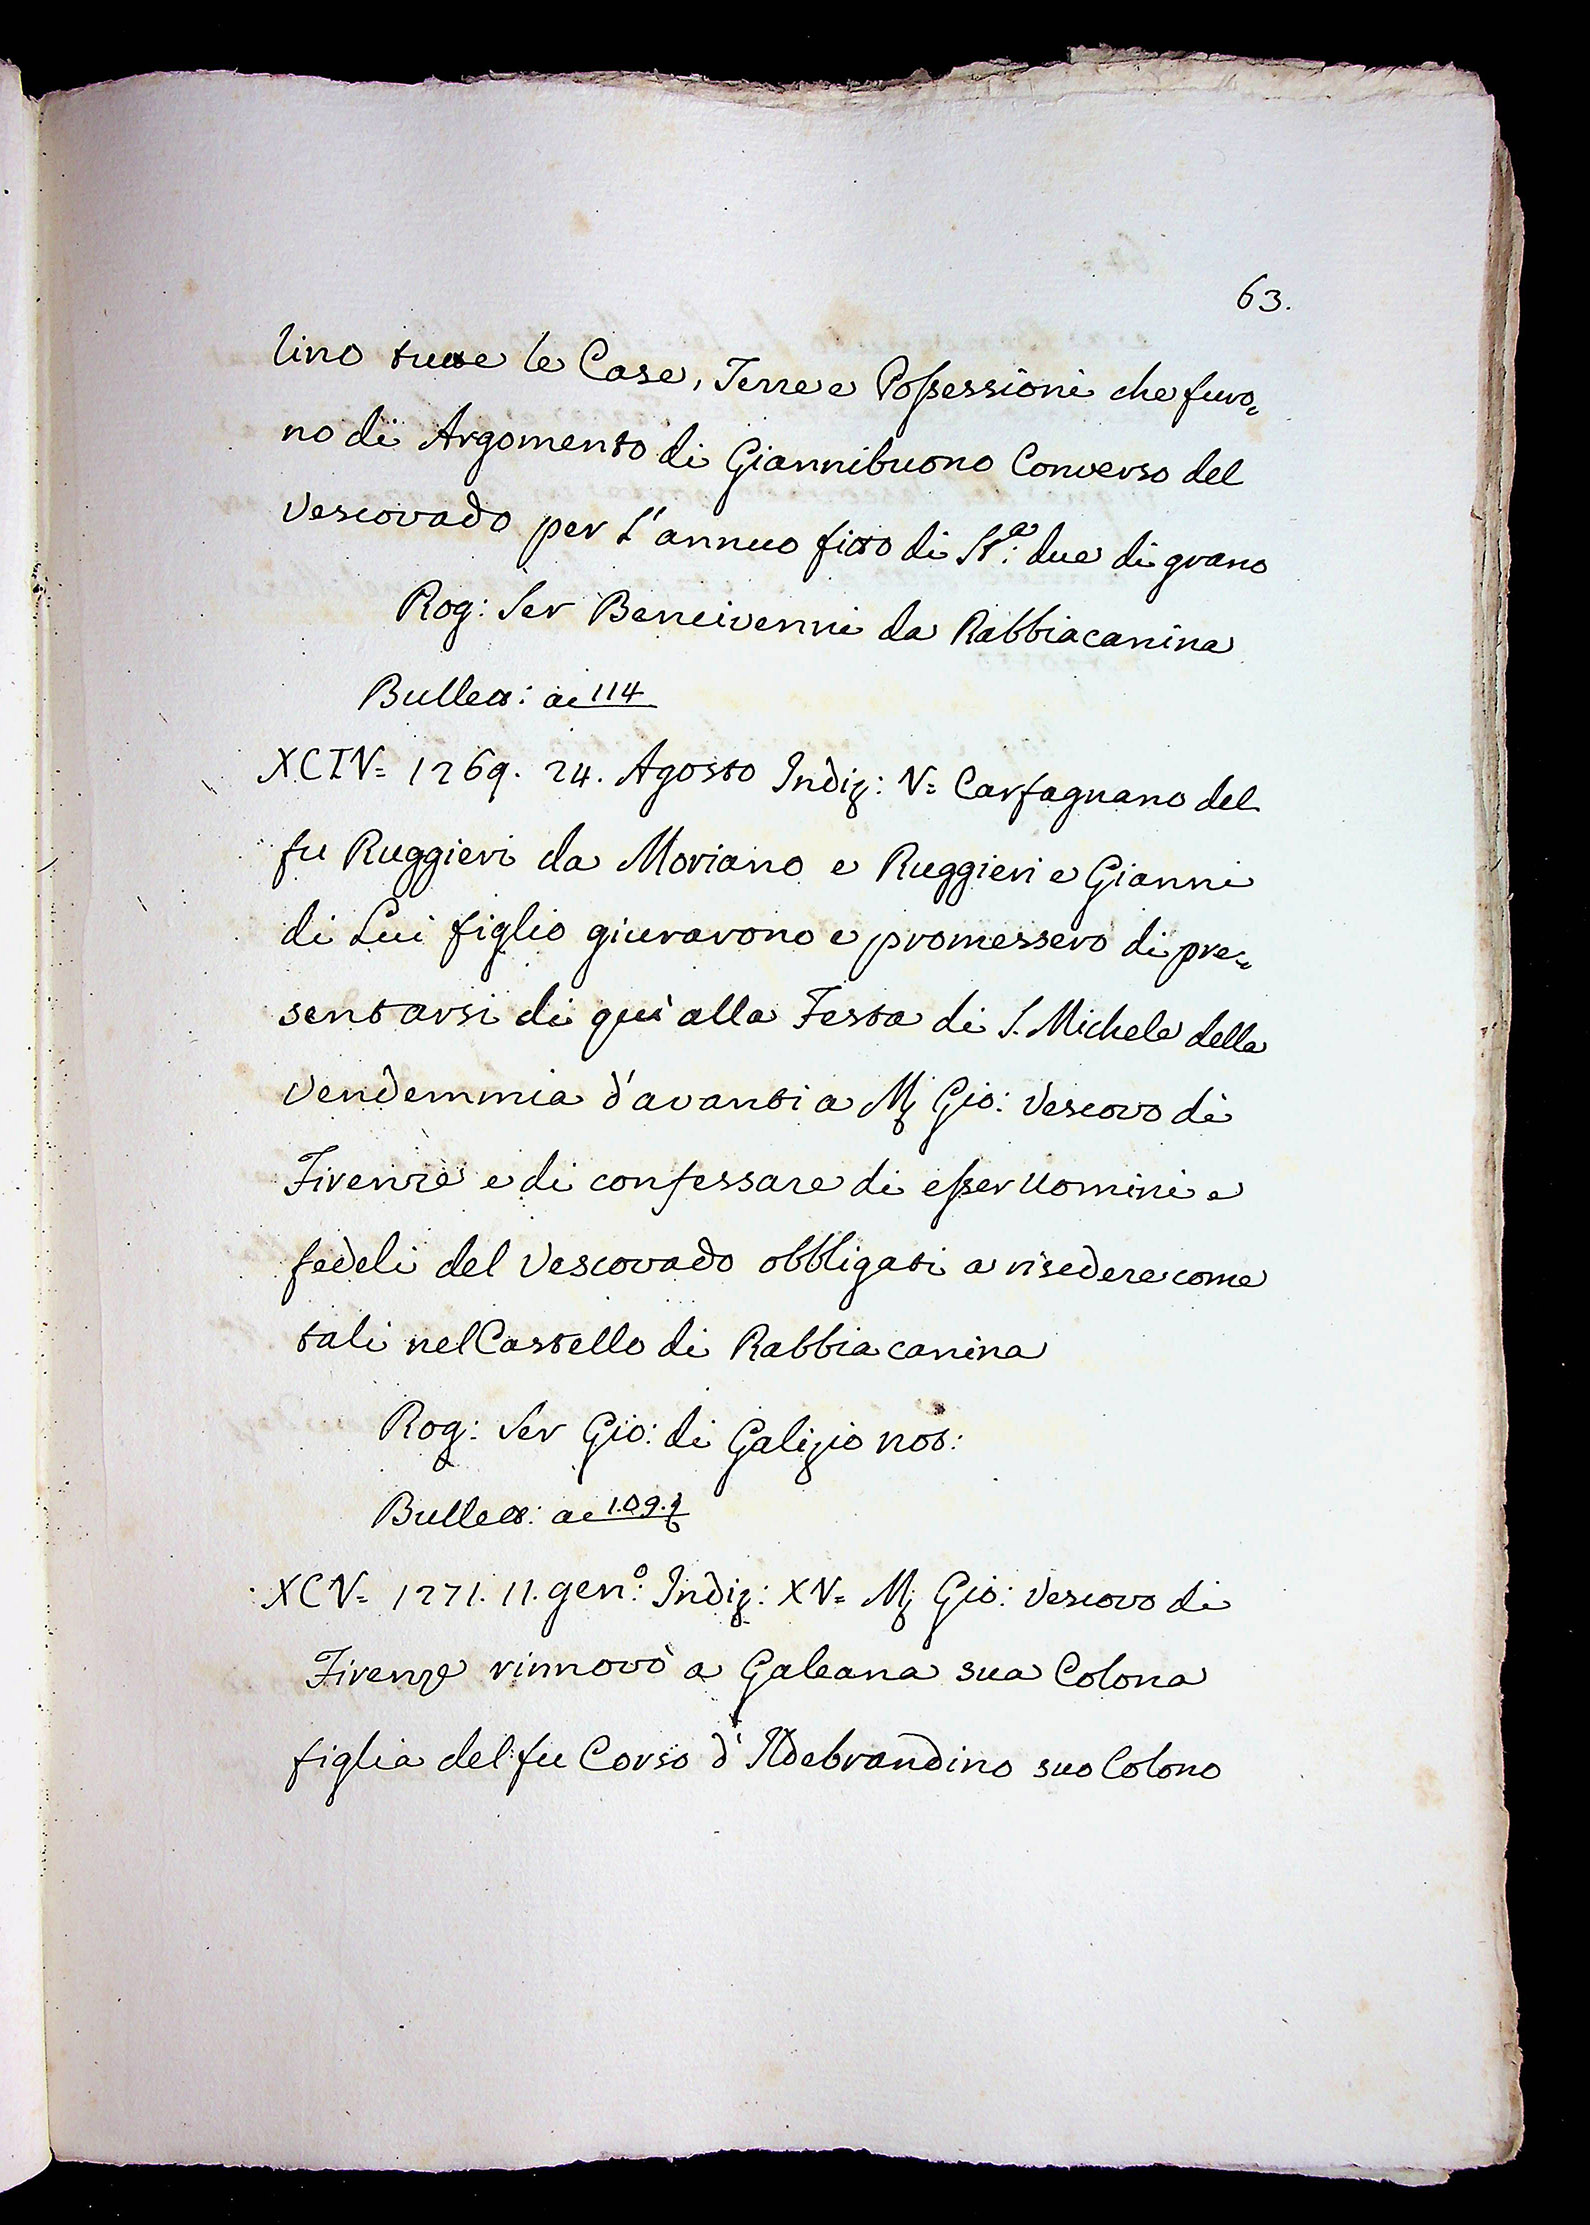 63.
lino tutte le Case, Terre e Possessioni che furo=
no di Argomento di Giannibuono Converso del
Vescovado per l'annuo fitto di St.ª due di grano
Rog: Ser Bencivenni da Rabbiacanina
Bullett: a c 114
XCIV= 1269. 24. Agosto Indiz: V= Carfagnano del
fu Ruggieri da Moriano e Ruggieri e Gianni
di Lui figlio giurarono e promessero di pre=
sentarsi di quì alla Festa di S. Michele della
Vendemmia d'avanti a Mſ Gio: Vescovo di
Firenze e di confessare di esser Uomini e
fedeli del Vescovado obbligati a risedere come
tali nel Castello di Rabbiacanina
Rog: Ser Gio: di Galizio not:
Bullett: a c 109.
XCV= 1271. 11. gen.º Indiz: XV= Mſ Gio: Vescovo di
Firenze rinnovò a Galeana sua Colona
figlia del fu Corso d'Ildebrandino suo Colono